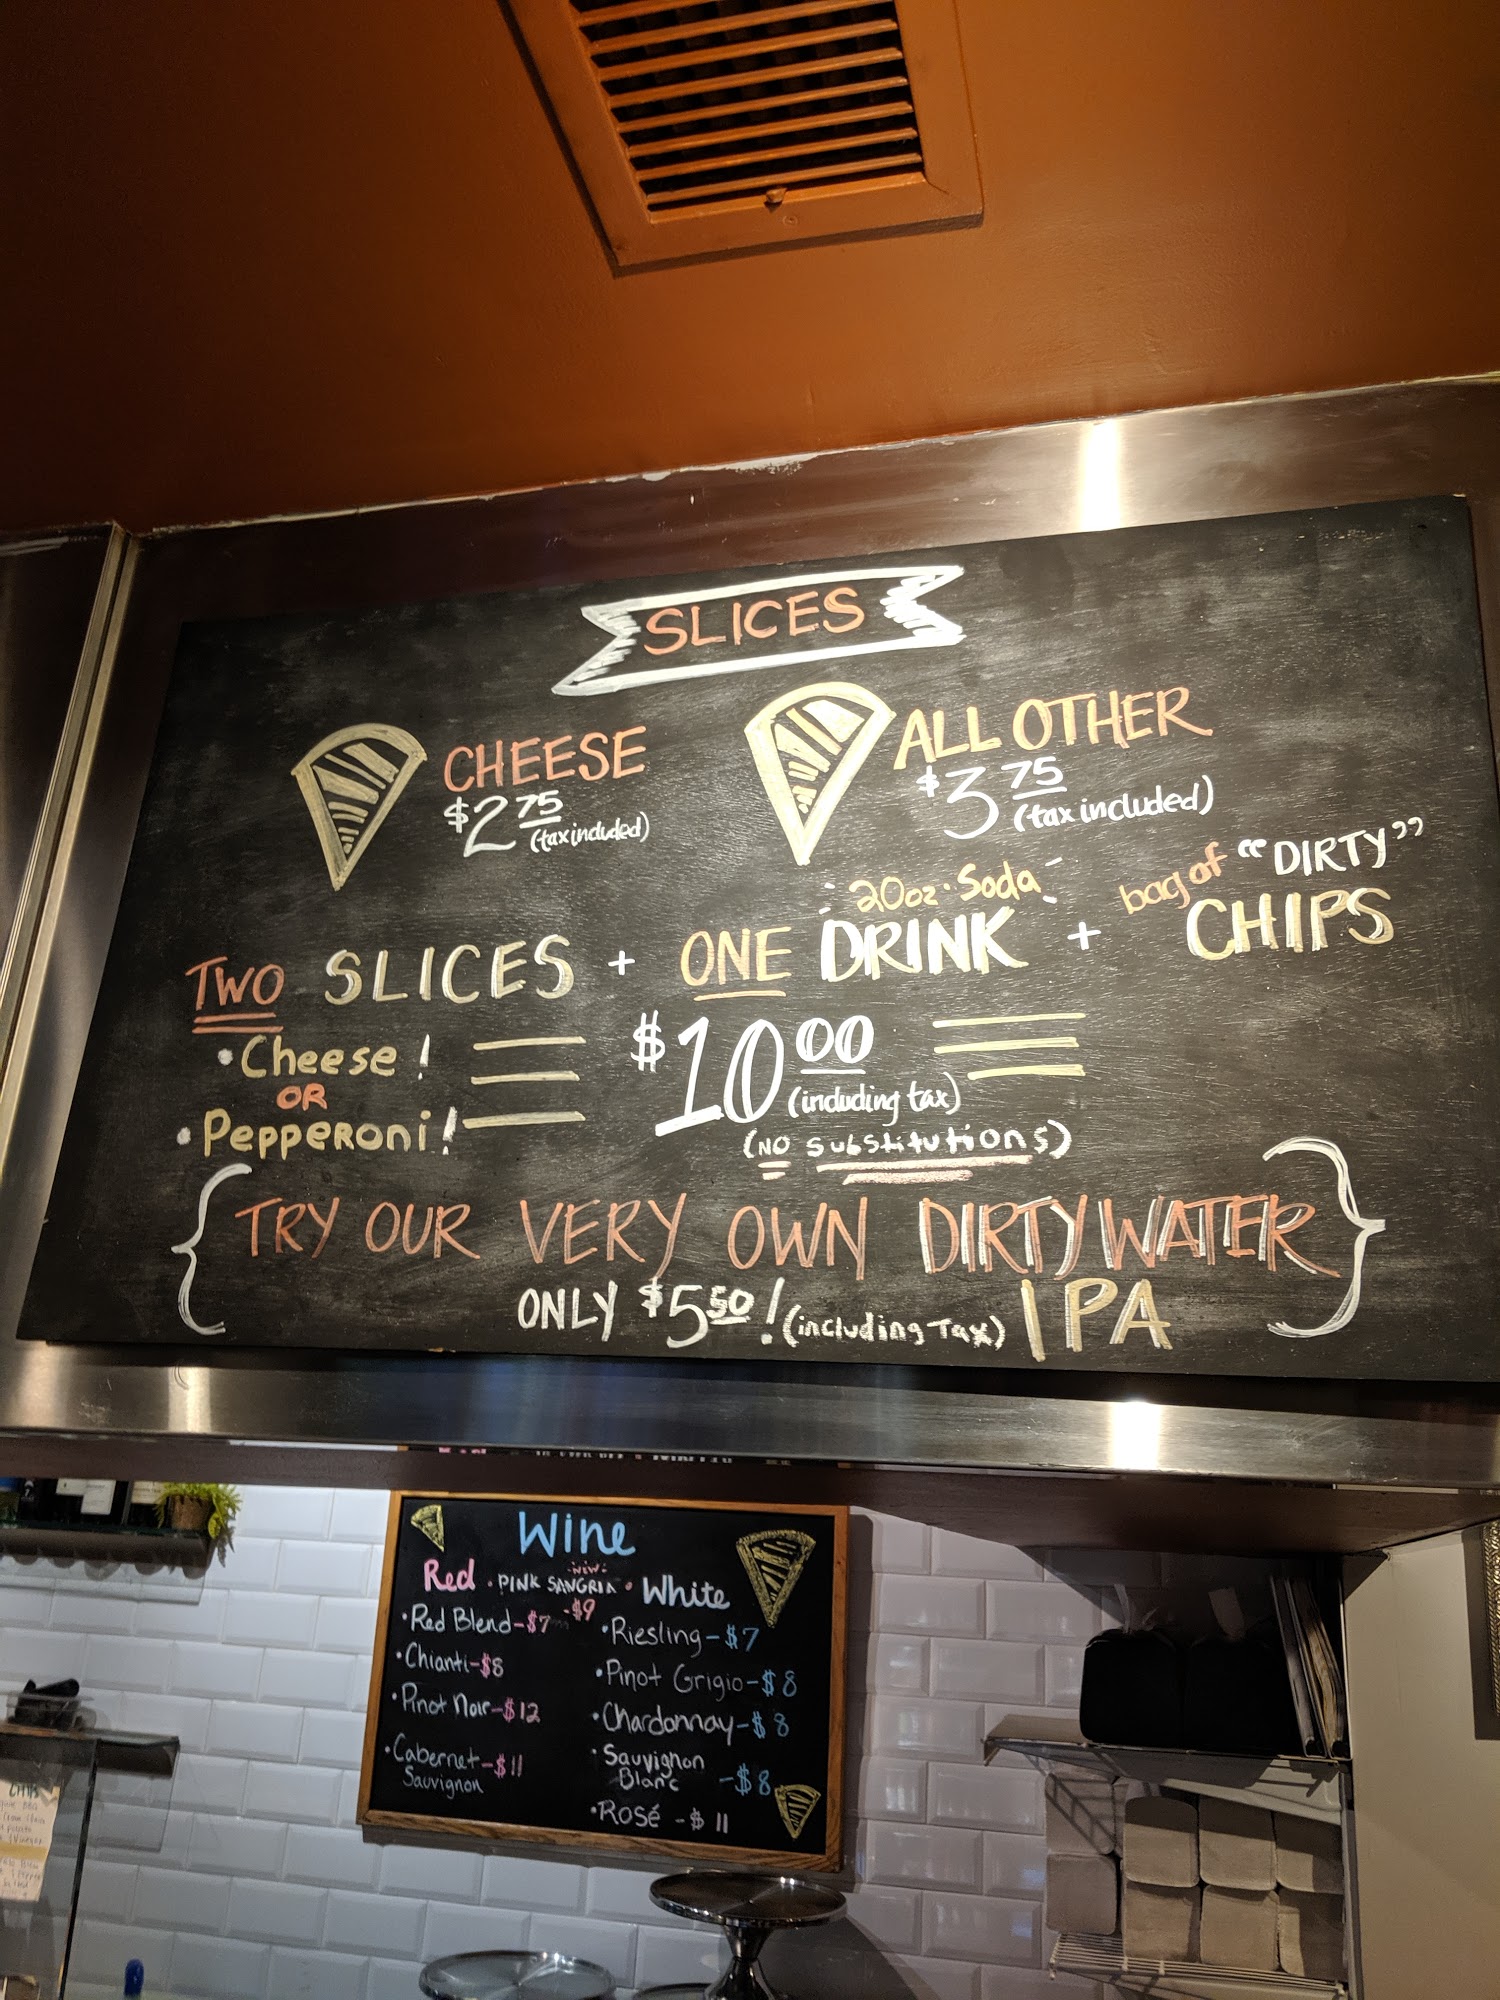 SLICES
CHEESE
$2 75 (tax included)
ALL OTHER
$3 75 (tax included)
20oz. Soda
bag of "DIRTY"
TWO SLICES + ONE DRINK + CHIPS
• Cheese!
OR
• Pepperoni!
$10 00
(including tax)
(NO SUBSTITUTIONS)
{TRY OUR VERY OWN DIRTY WATER
ONLY $5 50! (including Tax) IPA}
Wine
Red
NEW!
• PINK SANGRIA •
-$9
White
• Red Blend-$7
• Chianti-$8
• Pinot Noir-$12
• Cabernet -$11
Sauvignon
• Riesling-$7
• Pinot Grigio-$8
• Chardonnay-$8
• Sauvignon
Blanc -$8
• Rosé -$11
CHIPS